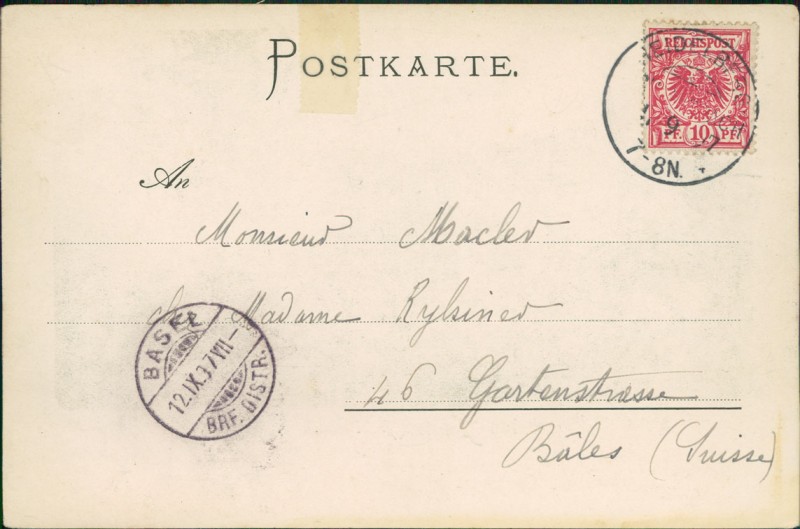 POSTKARTE.
REICHSPOST
PF. 10 PF.
9
7-8N.
An
Monsieur Macler
Madame
46 Gartenstrasse
Bâles (Suisse)
BASEL
12.IX.97.VII-
BRF. DISTR.